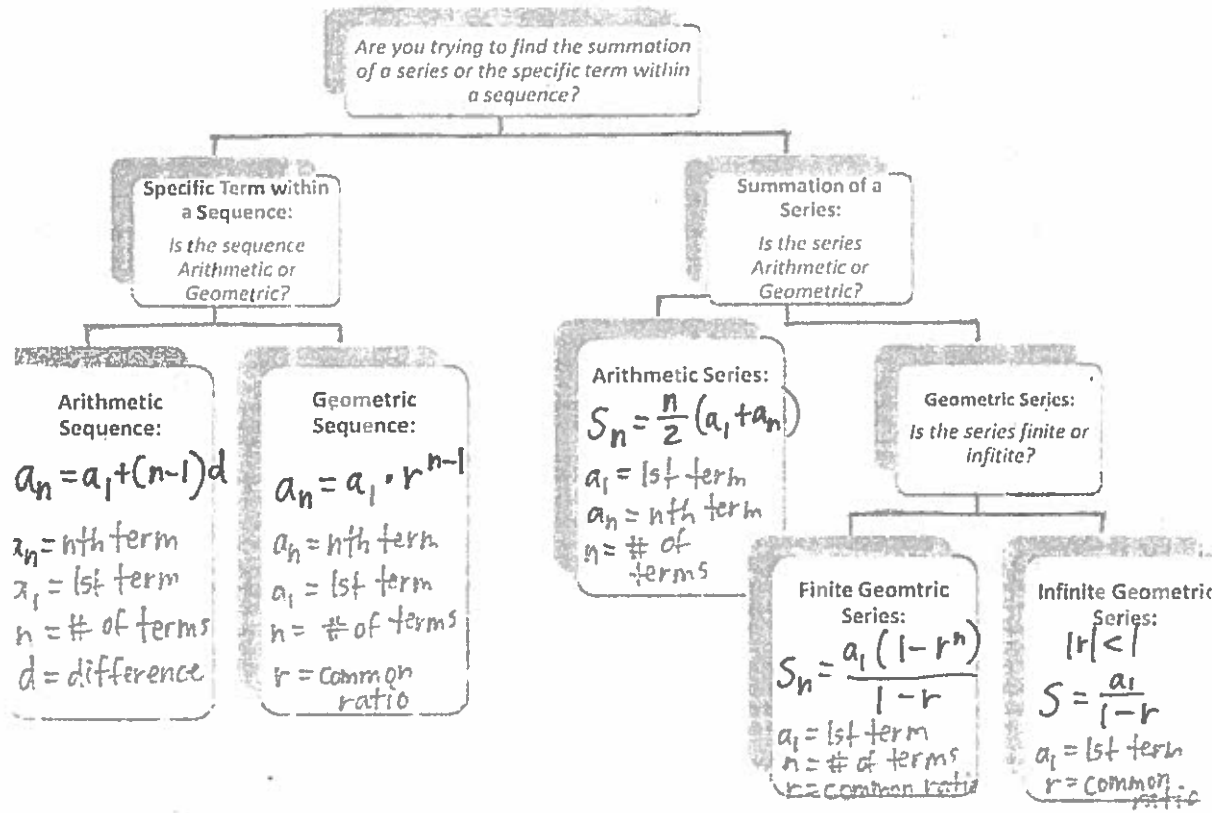 Are you trying to find the summation
of a series or the specific term within
a sequence?
Specific Term within
a Sequence:
Is the sequence
Arithmetic or
Geometric?
Summation of a
Series:
Is the series
Arithmetic or
Geometric?
Arithmetic
Sequence:
aₙ = a₁ + (n-1)d
xₙ = nth term
x₁ = 1st term
n = # of terms
d = difference
Geometric
Sequence:
aₙ = a₁ · rⁿ⁻¹
aₙ = nth term
a₁ = 1st term
n = # of terms
r = common
ratio
Arithmetic Series:
Sₙ = n/2 (a₁ + aₙ)
a₁ = 1st term
aₙ = nth term
n = # of
terms
Geometric Series:
Is the series finite or
infitite?
Finite Geomtric
Series:
Sₙ = a₁(1-rⁿ)/1-r
a₁ = 1st term
n = # of terms
r = common ratio
Infinite Geometric
Series:
|r| < 1
S = a₁/1-r
a₁ = 1st term
r = common
ratio